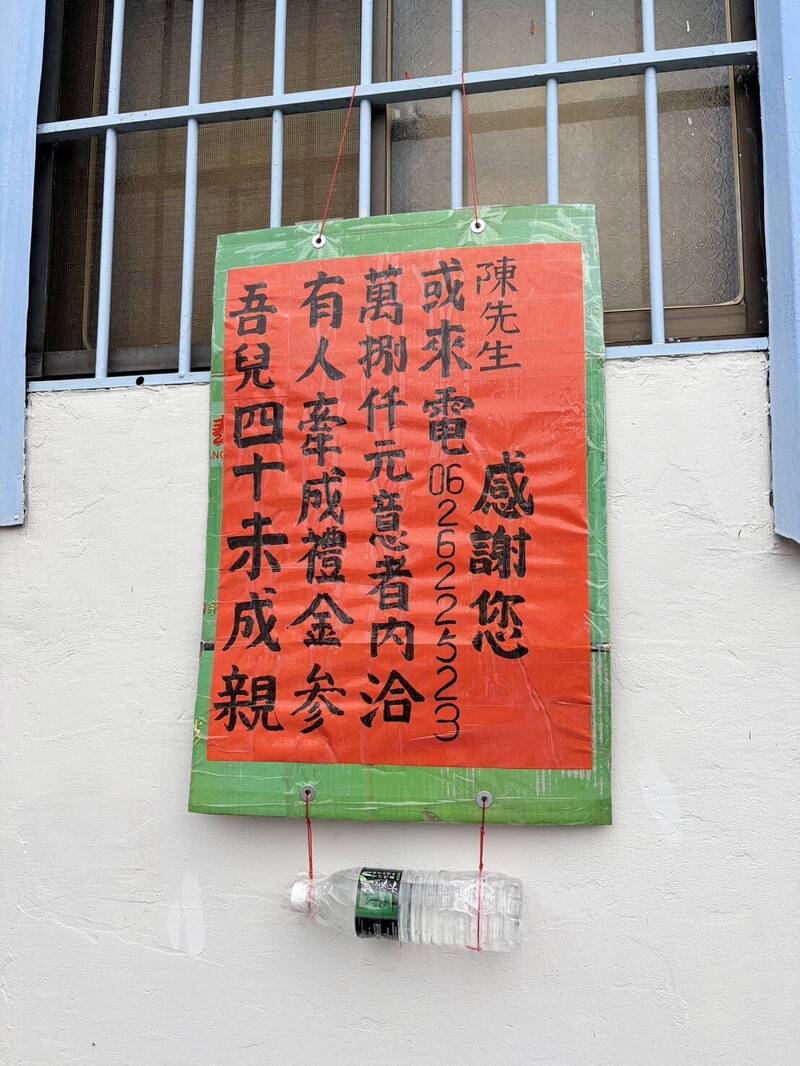 吾兒四十未成親
有人牽成禮金参
萬捌仟元意者內洽
或來電062622523
陳先生
感謝您